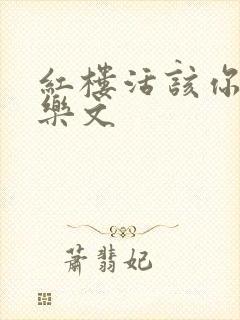 紅樓活該你
樂文
蕭翡妃